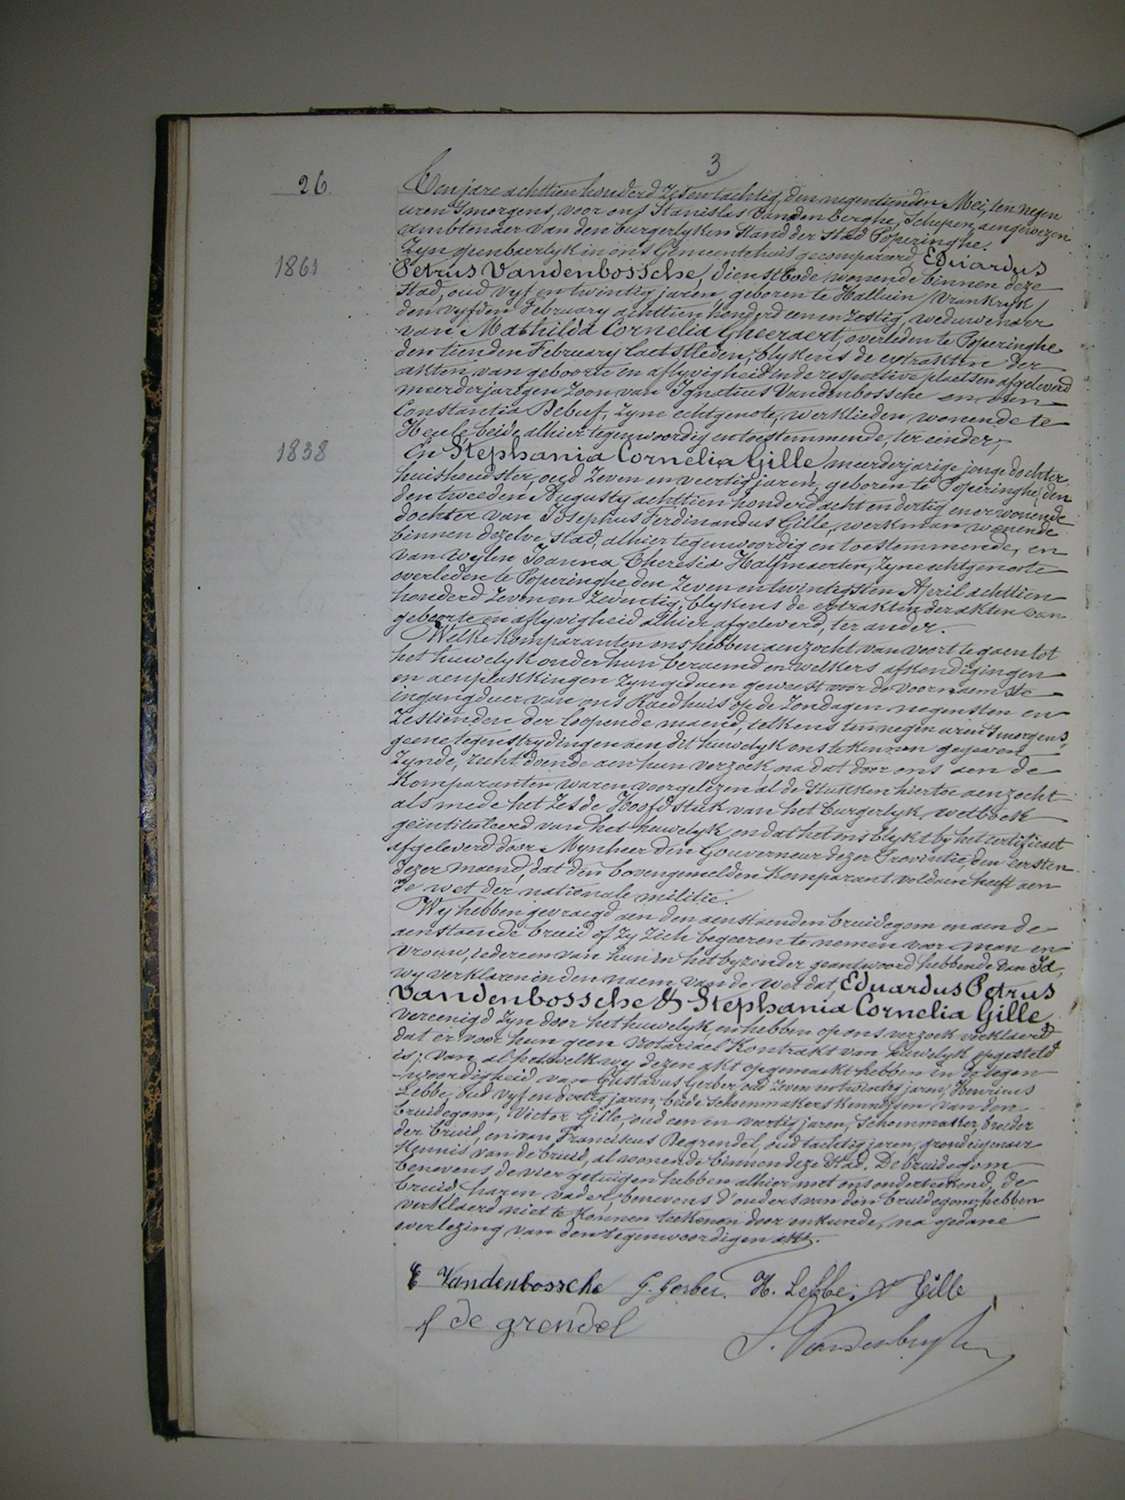 3
26
Een jare achttien honderd Zes en tachtig, den negentienden Mei, ten negen
uren 's morgens, voor ons Stanislas Vandenberghe, Schepen, aengewezen
ambtenaer van den burgerlyken Stand der stad Poperinghe,
Zyn openbaerlyk in ons Gemeentehuis gecompareerd Eduardus
1861
Petrus Vandenbossche, dienstbode, wonende binnen deze
Stad, oud vyf en twintig jaren, geboren te Halluin (Vrankryk)
den vyfden February achttien honderd een en Zestig, weduwenaer
van Mathilda Cornelia Gheeraert, overleden te Poperinghe
den tienden February laetstleden, blykens de extrakten der
akten van geboorte en aflyvigheid in de respective plaetsen afgeleverd
meerderjarigen Zoon van Ignatius Vandenbossche en van
Constantia Debuf, Zyne echtgenote, werklieden, wonende te
Heule beide alhier tegenwoordig en toestemmende, ter eender,
1838
En Stephania Cornelia Gille, meerderjarige jonge dochter
huishoudster, oud Zeven en veertig jaren, geboren te Poperinghe, den
den tweeden Augusty achttien honderd acht en dertig en er wonende
dochter van Josephus Ferdinandus Gille, werkman wonende
binnen dezelve stad, alhier tegenwoordig en toestemmende, en
van wylen Joanna Theresia Halfmaerten, Zyne echtgenote
overleden te Poperinghe, den Zeven en twintigsten April achttien
honderd Zeven en Zeventig, blykens de extrakten der akten van
geboorte en aflyvigheid alhier afgeleverd, ter ander.
Welke komparanten ons hebben aenzocht van voort te gaen tot
het huwelyk onder hun beraemd en welkers afkondigingen
en aenplakkingen Zyn gedaen geweest voor de voornaemste
ingangdeur van ons Raedhuis op de Zondagen negensten en
Zestienden der loopende maend, telkens ten negen uren 's morgens,
geene tegenstrydingen aen dit huwelyk ons te kennen gegeven
Zynde, recht doende aen hun verzoek, na dat door ons aen de
Komparanten waren voorgelezen al de stukken hiertoe aenzocht
alsmede het Zesde Hoofdstuk van het burgerlyk wetboek
geintituleerd van het huwelyk, en dat het ons blykt by het certificaet
afgeleverd door Mynheer den Gouverneur dezer Provintie, den eersten
dezer maend, dat den bovengemelden komparant voldaen heeft aen
de wet der nationale militie.
Wy hebben gevraegd aen den aenstaenden bruidegom en aen de
aenstaende bruid of Zy Zich begeeren te nemen voor man en
vrouw, iedereen van hun in het byzonder geantwoord hebbende van Ja,
wy verklaren in den naem van de wet dat Eduardus Petrus
Vandenbossche & Stephania Cornelia Gille,
vereenigd Zyn door het huwelyk, en hebben op ons verzoek verklaerd
dat er voor hun geen Notariael Kontrakt van huwelyk opgesteld
is; van al hetwelk wy dezen akt opgemaekt hebben in de tegen-
woordigheid van Gustavus Gerber, oud Zeven en twintig jaren, Henricus
Lebbe, oud vyf en dertig jaren, beide schoenmakers kennissen van den
bruidegom, Victor Gille, oud een en veertig jaren, Schoenmaker, broeder
der bruid, en van Franciskus Degrendel, oud tachtig jaren, grondeigenaer
Kennis van de bruid, al wonende binnen deze Stad. De bruidegom
benevens de vier getuigen hebben alhier met ons onderteekend, de
bruid haren vader, benevens d'ouders van den bruidegom, hebben
verklaerd niet te konnen teekenen door onkunde, na gedane
overlezing van den tegenwoordigen akt.
E Vandenbossche G. Gerber. H. Lebbe. V Gille
f de grendel
S. Vandenberghe